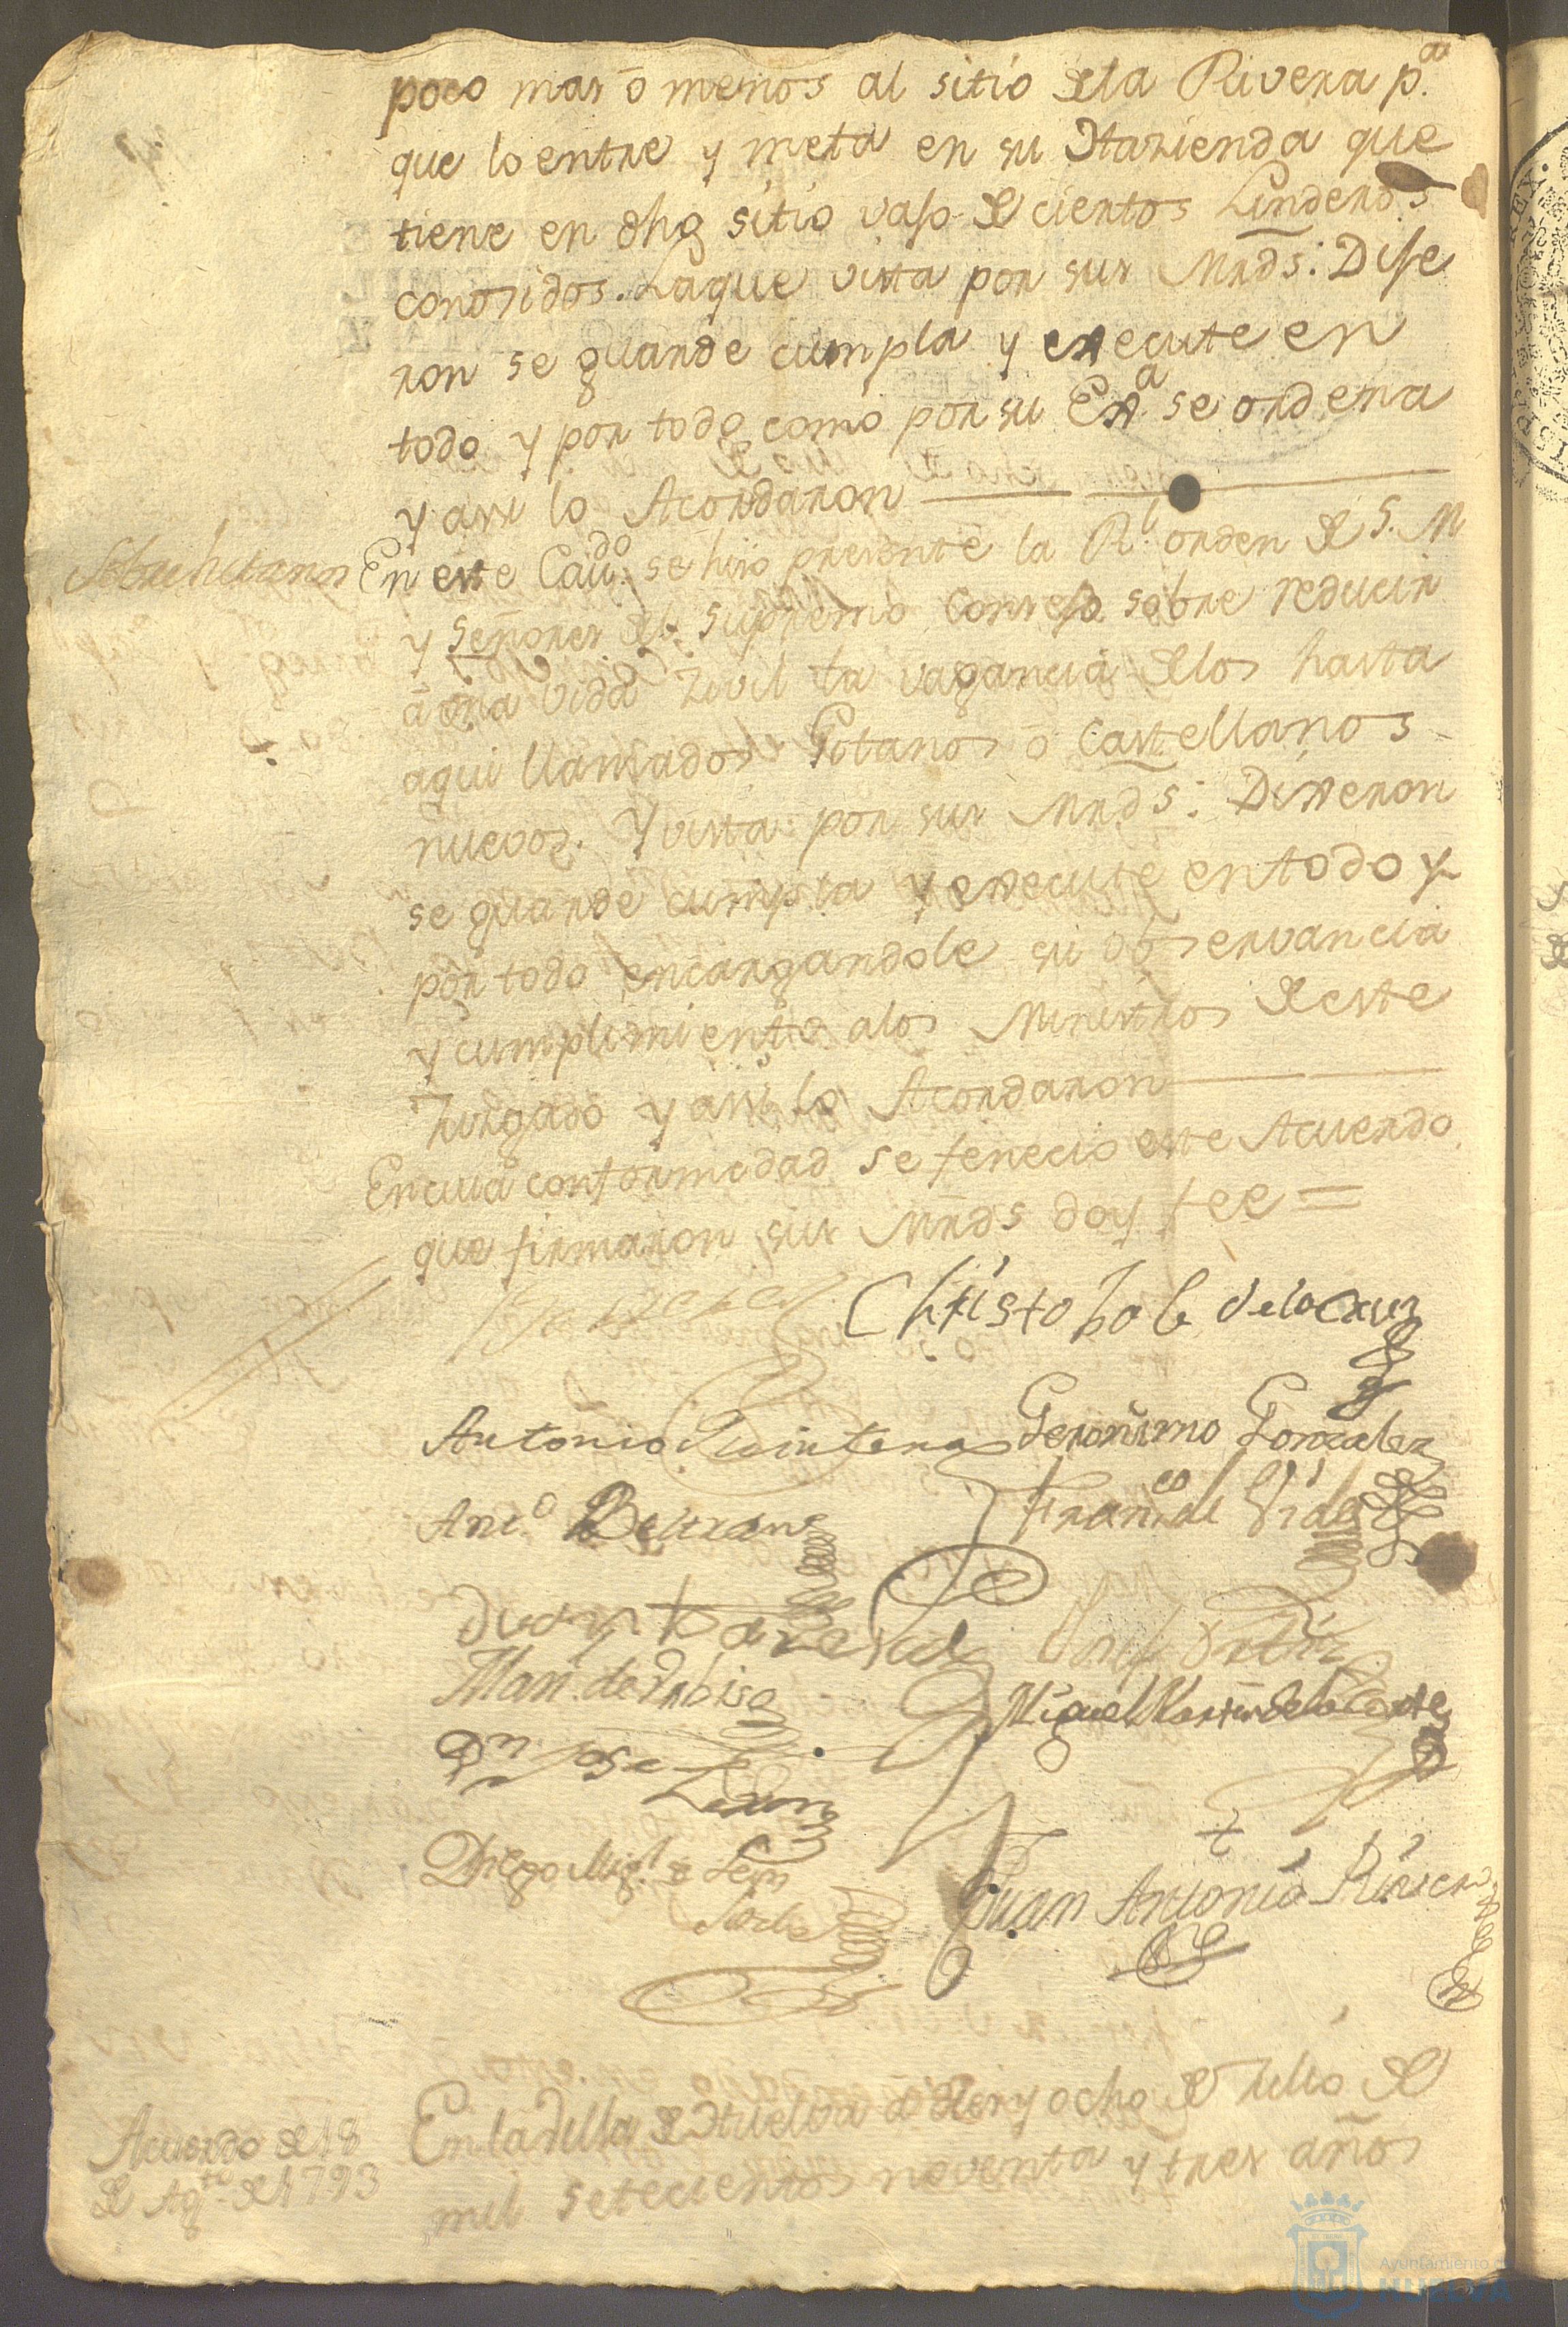 poco mas ō menos al sitio de la Rivera p.ª
que lo entre y meta en su Hazienda que
tiene en dho sitio vaso de ciertos Linderos
conosidos. Laque vista por sus Mrds: Dise
ron se guarde cumpla y execute en
todo y por todo como por su Exª se ordena
y assi lo Acordaron
Sobre hitanos
En este Cauᵈᵒ se hiso presente la Rˡ orden de S. M
y Señores del Supremo Consejo sobre reducir
â una vida Zivil la vagancia delos hasta
aqui llamados Gitanos ô Castellanos
nuevos. Y vista por sus Mrds: Dixeron
se guarde cumpla y execute en todo y
por todo encargandole su observancia
y cumplimiento alos Ministros de este
Jusgado y assi lo Acordaron
En cuia conformidad se fenecio este Acuerdo
que firmaron sus Mrds doy fee =
Christobal de la Cruz
Antonio Quintero Geronimo Gonzalez
Antº Beltrane Franᶜᵒ del Vide
Juan
Man. de
Miguel Martin de la Corte
Dⁿ Jose
Leon
Diego Migˡ de Leon
Sorbe
Juan Antonio Rivera
Acuerdo de 18
de Agᵗᵒ de 1793
En la Villa de Huelva a diez y ocho de Julio de
mil setecientos noventa y tres años
Ayuntamiento de
HUELVA